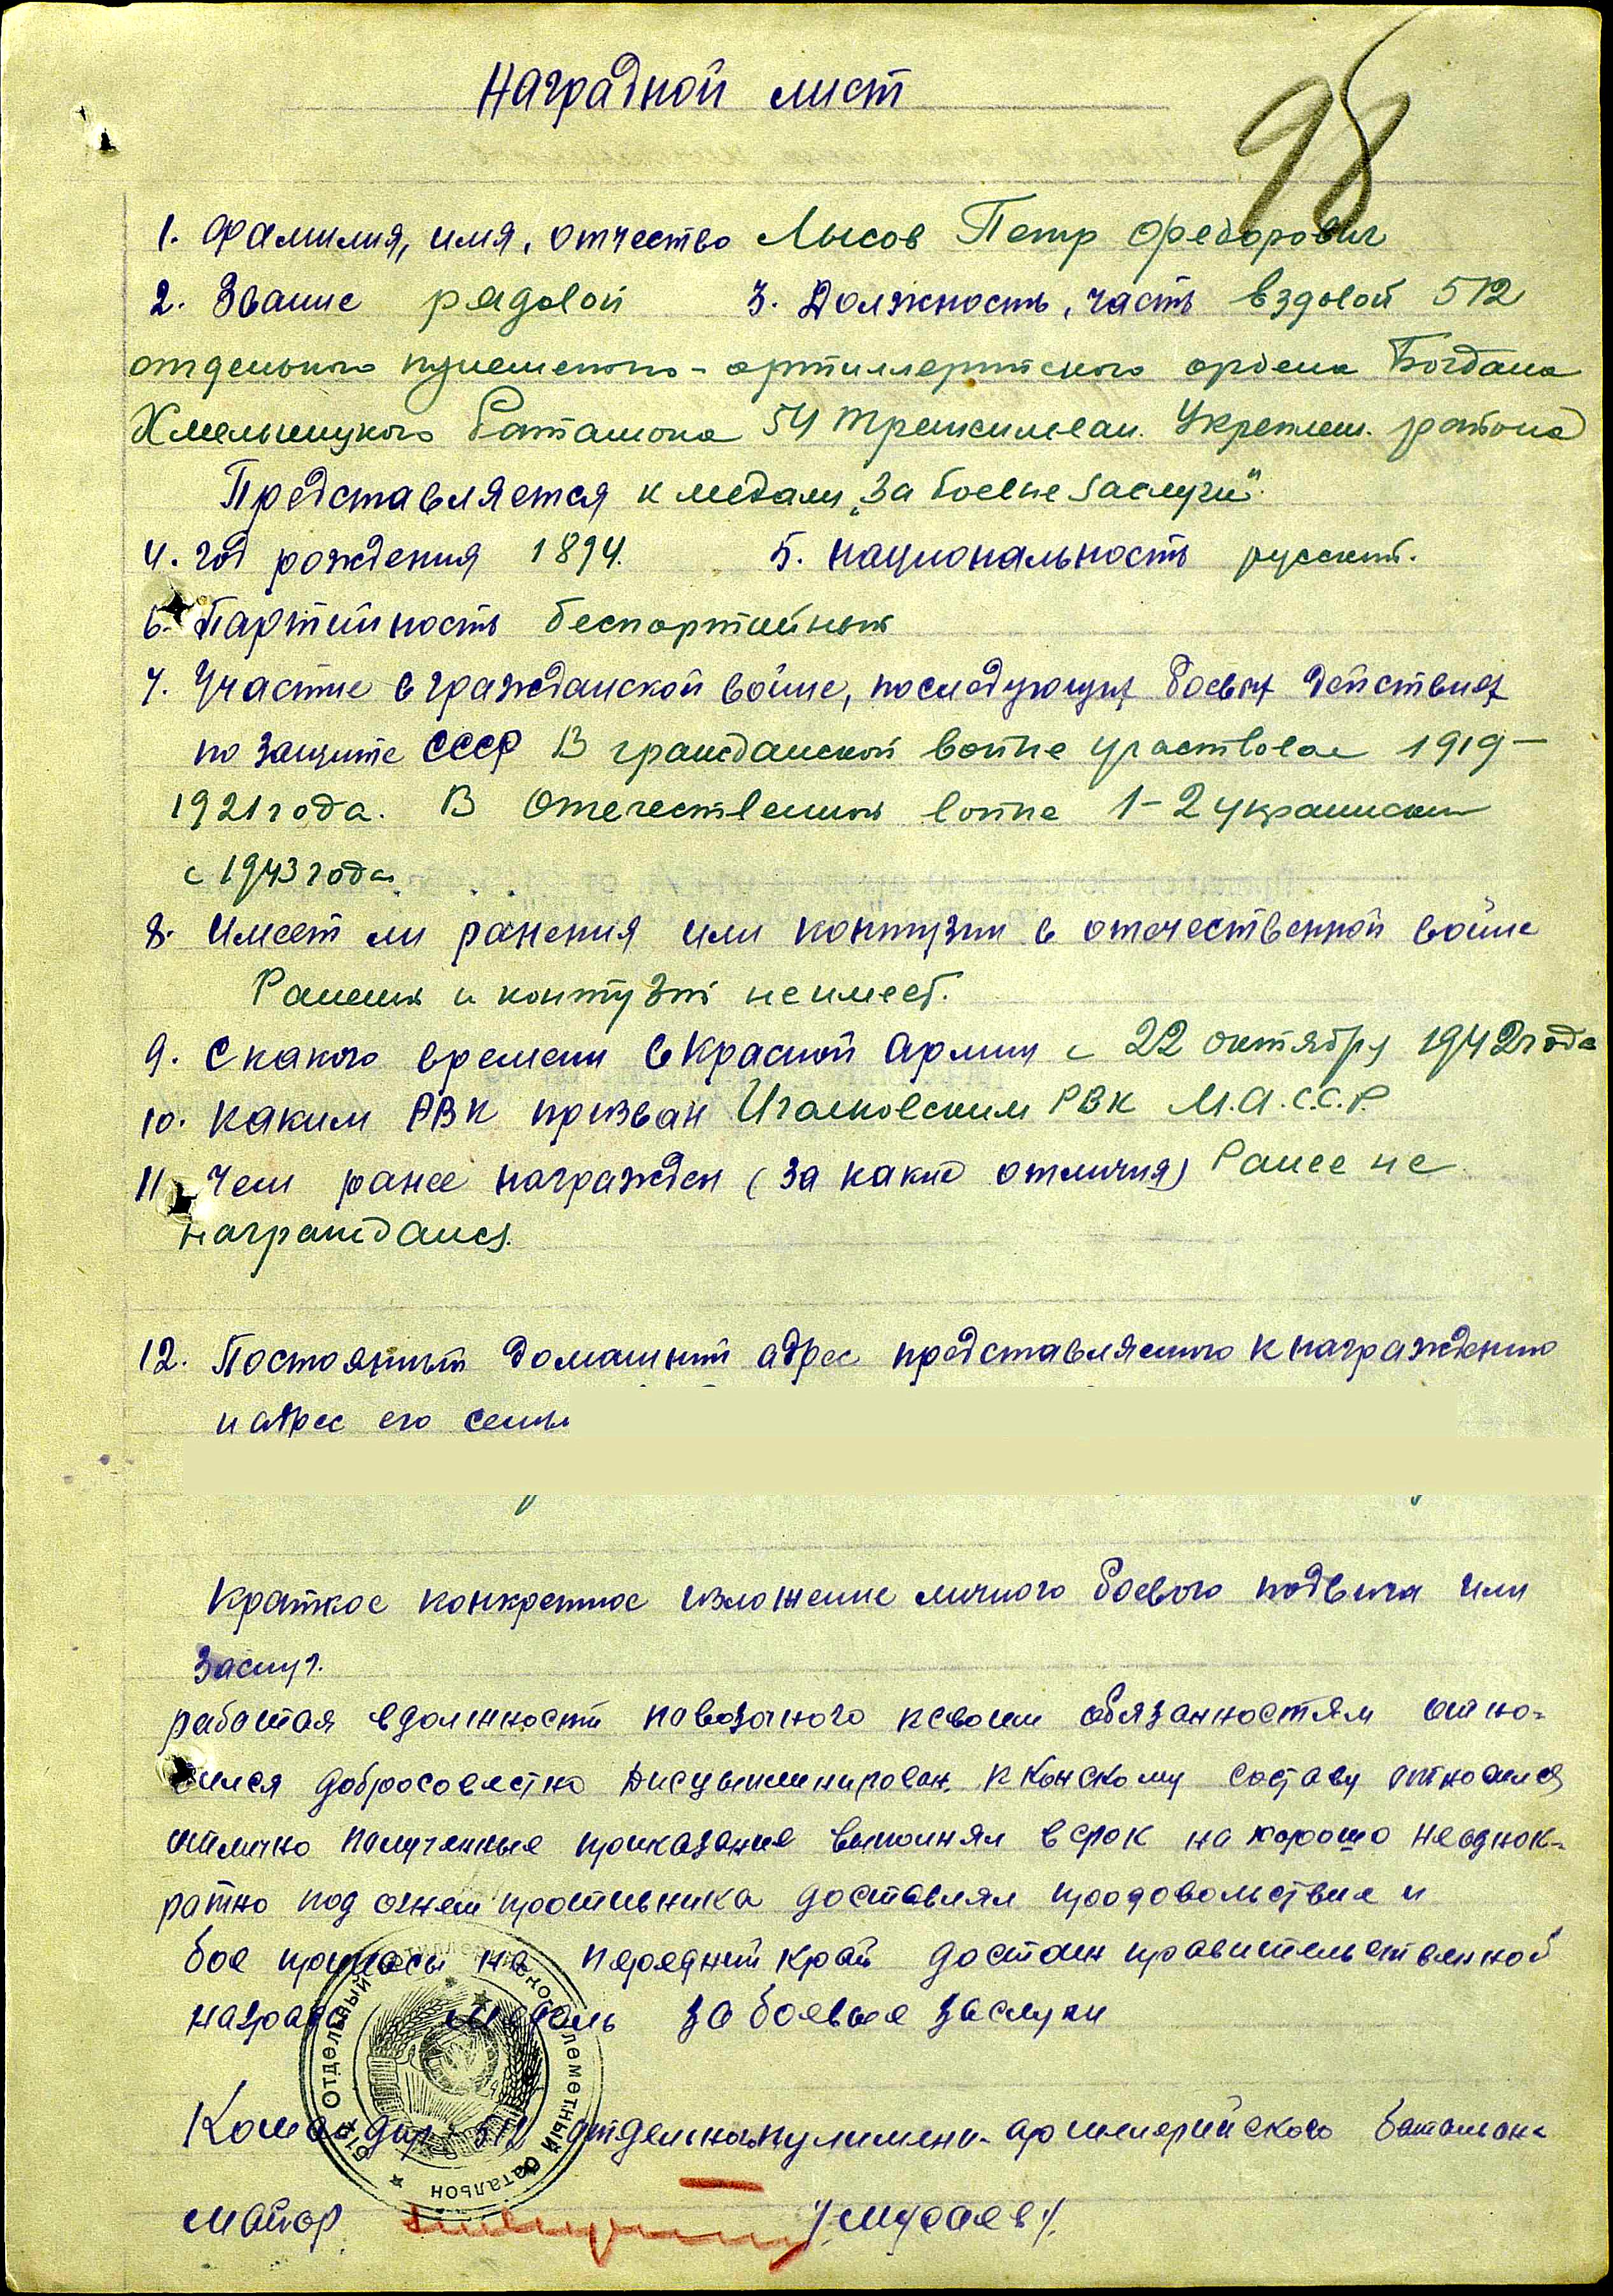 Наградной лист
98
1. Фамилия, имя, отчество Лысов Петр Федорович
2. Звание рядовой 3. Должность, часть ездовой 512
отдельного пулеметно-артиллерийского ордена Богдана
Хмельницкого батальона 54 Укреплен. района
Представляется к медали „За боевые заслуги".
4. год рождения 1894. 5. национальность русский.
6. Партийность беспартийный
7. Участие в гражданской войне, последующих боевых действиях
по защите СССР В гражданской войне участвовал 1919-
1921 года. В Отечественной войне 1-2 украинском
с 1943 года.
8. Имеет ли ранения или контузии в отечественной войне
Ранений и контузий не имеет.
9. С какого времени в Красной Армии с 22 октября 1942 года
10. каким РВК призван РВК М.А.С.С.Р.
11 Чем ранее награжден (за какие отличия) Ранее не
награждался.
12. Постоянный домашний адрес представляемого к награждению
и адрес его семьи
Краткое конкретное изложение личного боевого подвига или
заслуг.
работая в должности повозочного к своим обязанностям отно-
сился добросовестно дисциплинирован, к конскому составу относился
отлично полученные приказания выполнял в срок на хорошо неоднок-
ратно под огнем противника доставлял продовольствие и
бое припасы на передний край достоин правительственной
награды медаль за боевые заслуги
Командир 512 отдельного пулемено-артиллерийского батальона
майор /Мусаев/.
Отдельный пулеметный батальон